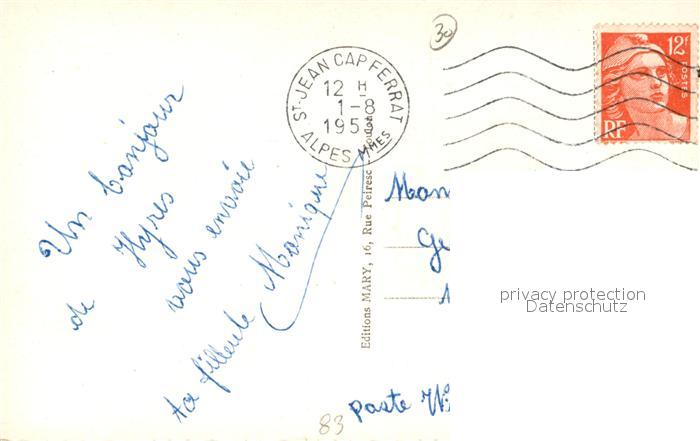 Un bonjour
de Hyres
vous envoie
ta filleule Monique
ST-JEAN CAP FERRAT
12 H
1-8
195
ALPES MMES
30
12F
POSTES
RF
Editions MARY, 16, Rue Peiresc
Mon
Ge
privacy protection
Datenschutz
poste
83